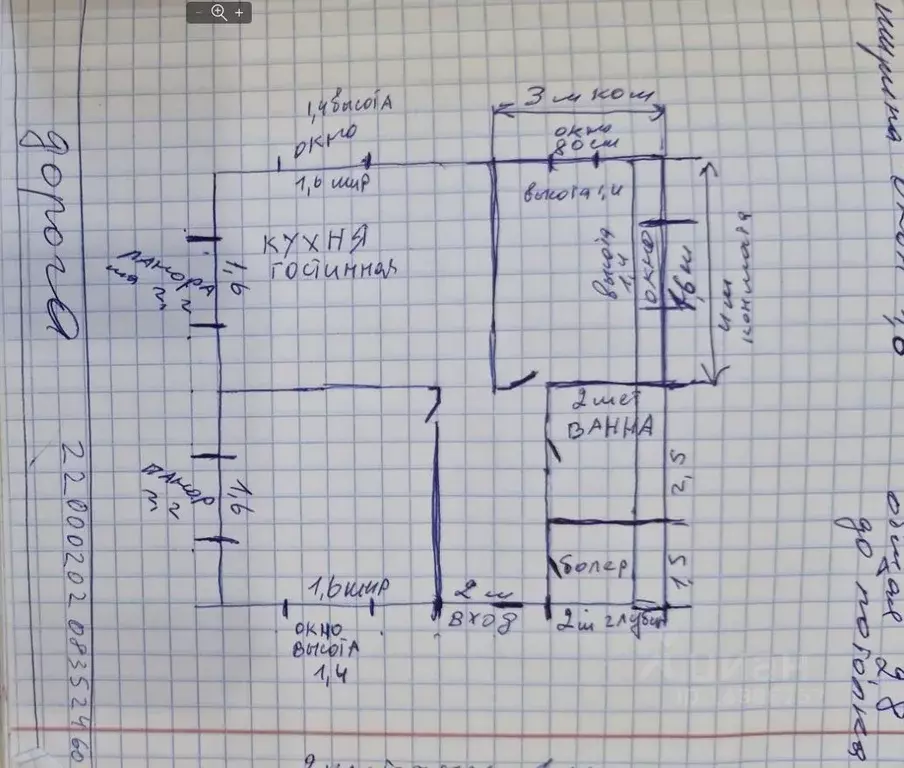 1,4 высота
окно
1,6 шир
3 м ком
окно
80 см
высота 1,4
КУХНЯ
ГОСТИННАЯ
1,6
высота
1,4
окно
1,8 ш
4 м
комната
2 мет
ВАННА
2,5
1,6
болер
1,5
1,6 шир
2 м
вход
2 м глуби
окно
высота
1,4
дорога
2200020208352460
ширина окон 1,6
общая 2,8
до потолка
ЦИАН